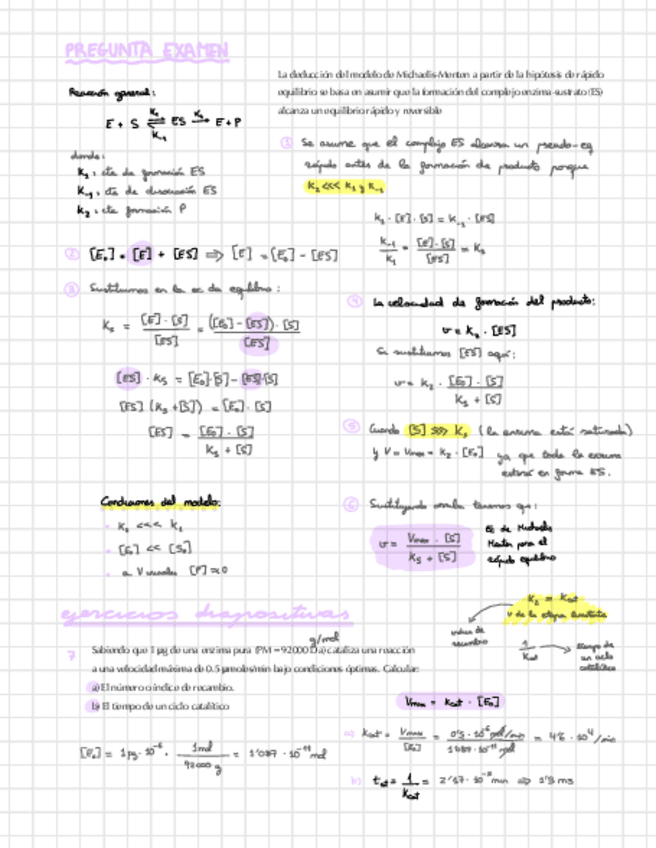 PREGUNTA EXAMEN
La deducción del modelo de Michaelis-Menten a partir de la hipótesis de rápido
equilibrio se basa en asumir que la formación del complejo enzima-sustrato (ES)
alcanza un equilibrio rápido y reversible
Reacción general:
E + S ⇌ ES → E+P
K₁ K₂
K₋₁
donde:
K₁: cte de formación ES
K₋₁: cte de disociación ES
K₂: cte formación P
① Se asume que el complejo ES alcanza un pseudo-eq
rápido antes de la formación de producto porque
K₂ <<< K₁ y K₋₁
K₁ · [E] · [S] = K₋₁ · [ES]
K₋₁/K₁ = [E]·[S]/[ES] = Ks
② [E₀] = [E] + [ES] ⟹ [E] = [E₀] - [ES]
③ Sustituimos en la ec de equilibrio:
Ks = [E]·[S]/[ES] = ([E₀]-[ES])·[S]/[ES]
[ES] · Ks = [E₀]·[S] - [ES]·[S]
[ES] (Ks+[S]) = [E₀] · [S]
[ES] = [E₀]·[S]/Ks + [S]
④ La velocidad de formación del producto:
v = K₂ · [ES]
Si sustituimos [ES] aquí:
v = K₂ · [E₀]·[S]/Ks + [S]
⑤ Cuando [S] >>> Ks (la enzima está saturada)
y V = Vmax = K₂ · [E₀] ya que toda la enzima
estará en forma ES.
Condiciones del modelo:
K₂ <<< K₁
[E₀] << [S₀]
a V iniciales [P] ≈ 0
⑥ Sustituyendo tenemos que:
v = Vmax · [S]/Ks + [S]
Ec de Michaelis
Menten para el
rápido equilibrio
ejercicios diapositivas
K₂ = Kcat
v de la etapa limitante
índice de
recambio
1/Kcat
tiempo de
un ciclo
catalítico
g/mol
7 Sabiendo que 1 µg de una enzima pura (PM = 92000 Da) cataliza una reacción
a una velocidad máxima de 0.5 µmoles/min bajo condiciones óptimas. Calcular:
a) El número o índice de recambio.
b) El tiempo de un ciclo catalítico
Vmax = Kcat · [E₀]
[E₀] = 1µg · 10⁻⁶ · 1mol/92000 g = 1'087 · 10⁻¹¹ mol
a) Kcat = Vmax/[E₀] = 0'5 · 10⁻⁶ mol/min/1'087 · 10⁻¹¹ mol = 4'6 · 10⁴ /min
b) tcat = 1/Kcat = 2'17 · 10⁻⁵ min ⟹ 1'3 ms